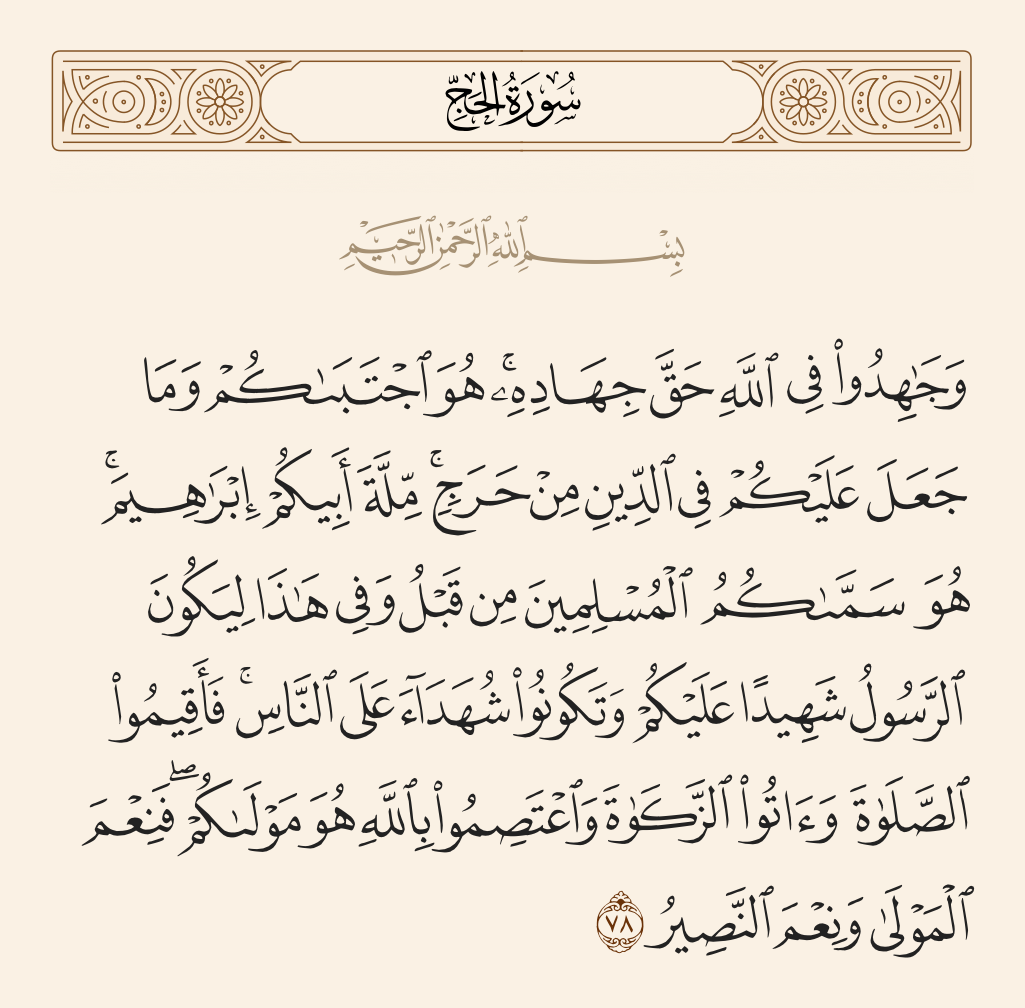 سُورَةُ الحَجِّ
بِسْمِ ٱللَّهِ ٱلرَّحْمَٰنِ ٱلرَّحِيمِ
وَجَٰهِدُوا۟ فِى ٱللَّهِ حَقَّ جِهَادِهِۦ ۚ هُوَ ٱجْتَبَىٰكُمْ وَمَا
جَعَلَ عَلَيْكُمْ فِى ٱلدِّينِ مِنْ حَرَجٍ ۚ مِّلَّةَ أَبِيكُمْ إِبْرَٰهِيمَ ۚ
هُوَ سَمَّىٰكُمُ ٱلْمُسْلِمِينَ مِن قَبْلُ وَفِى هَٰذَا لِيَكُونَ
ٱلرَّسُولُ شَهِيدًا عَلَيْكُمْ وَتَكُونُوا۟ شُهَدَآءَ عَلَى ٱلنَّاسِ ۚ فَأَقِيمُوا۟
ٱلصَّلَوٰةَ وَءَاتُوا۟ ٱلزَّكَوٰةَ وَٱعْتَصِمُوا۟ بِٱللَّهِ هُوَ مَوْلَىٰكُمْ ۖ فَنِعْمَ
ٱلْمَوْلَىٰ وَنِعْمَ ٱلنَّصِيرُ ٧٨